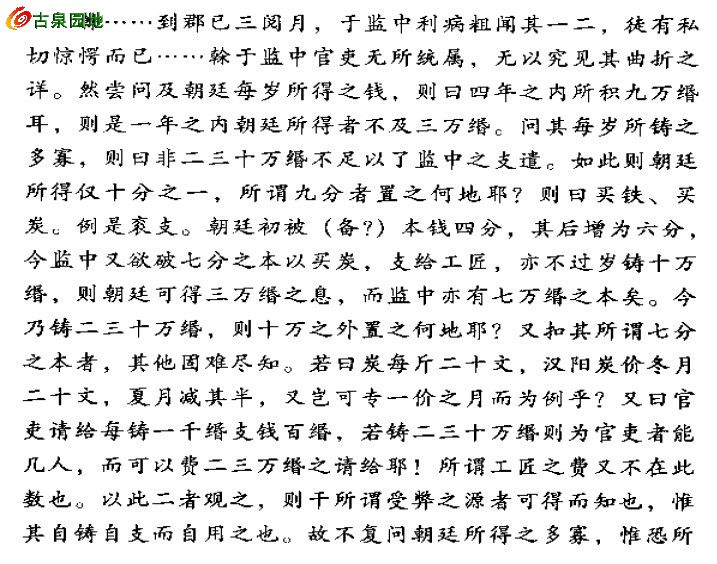 古泉园地
……到郡已三阅月，于监中利病粗闻其一二，徒有私
切惊愕而已……榦于监中官吏无所统属，无以究见其曲折之
详。然尝问及朝廷每岁所得之钱，则曰四年之内所积九万缗
耳，则是一年之内朝廷所得者不及三万缗。问其每岁所铸之
多寡，则曰非二三十万缗不足以了监中之支遣。如此则朝廷
所得仅十分之一，所谓九分者置之何地耶？则曰买铁、买
炭。例是衮支。朝廷初被（备？）本钱四分，其后增为六分，
今监中又欲破七分之本以买炭，支给工匠，亦不过岁铸十万
缗，则朝廷可得三万缗之息，而监中亦有七万缗之本矣。今
乃铸二三十万缗，则十万之外置之何地耶？又扣其所谓七分
之本者，其他固难尽知。若曰炭每斤二十文，汉阳炭价冬月
二十文，夏月减其半，又岂可专一价之月而为例乎？又曰官
吏请给每铸一千缗支钱百缗，若铸二三十万缗则为官吏者能
几人，而可以费二三万缗之请给耶！所谓工匠之费又不在此
数也。以此二者观之，则干所谓受弊之源者可得而知也，惟
其自铸自支而自用之也。故不复问朝廷所得之多寡，惟恐所